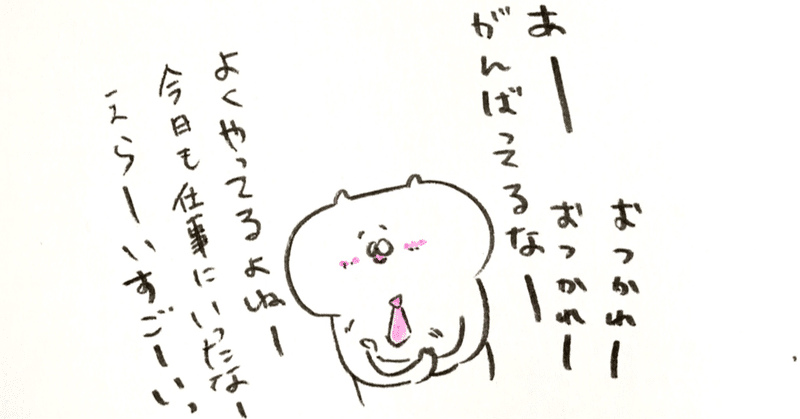 おつかれー
おっかれー
あー
がんばってるなー
よくやってるよねー
今日も仕事にいったなー
えらーいすごーいっ